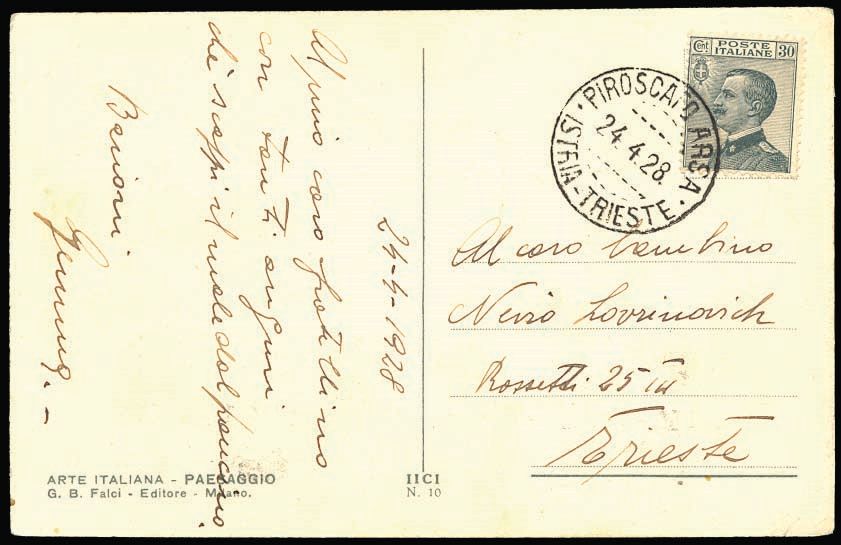 24-4-1928
Al mio caro fratellino
con tanti auguri
che scappi il male dal pancino.
Bacioni
Cent. POSTE ITALIANE 30
PIROSCAFO ARSA
24.4.28.
ISTRIA-TRIESTE
Al caro bambino
Nevio Lovrinovich
Rossetti 25 III
Trieste
ARTE ITALIANA - PAESAGGIO
G. B. Falci - Editore - Milano.
IICI
N. 10